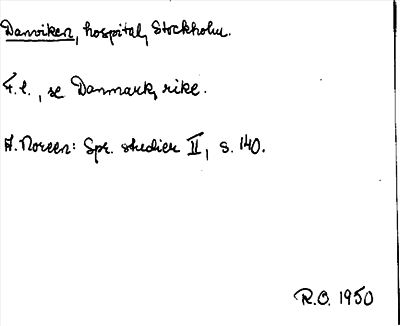 Danviken, hospital, Stockholm.
F.l., se Danmark, rike.
A. Noreen: Spr. studier II, s. 140.
R.O. 1950